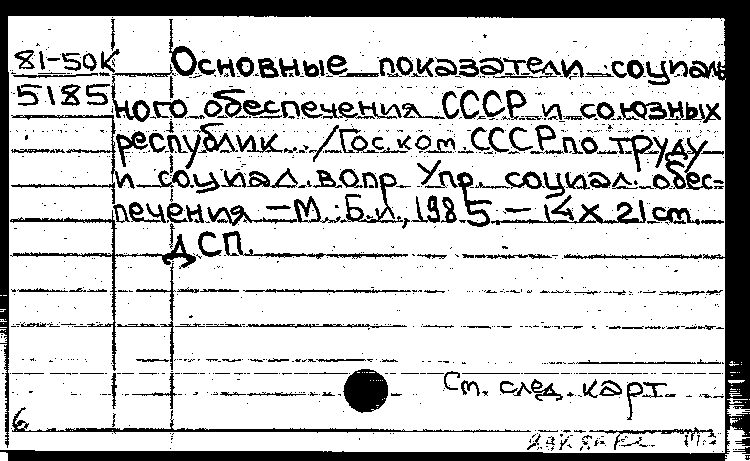 81-50к Основные показатели социаль
5185 ного обеспечения СССР и союзных
республик.../Гос. ком. СССР по труду
и социал. вопр. Упр. социал. обес-
печения. — М.: Б.и., 1985. — 14 x 21 см.
ДСП.
См. след. карт.
6